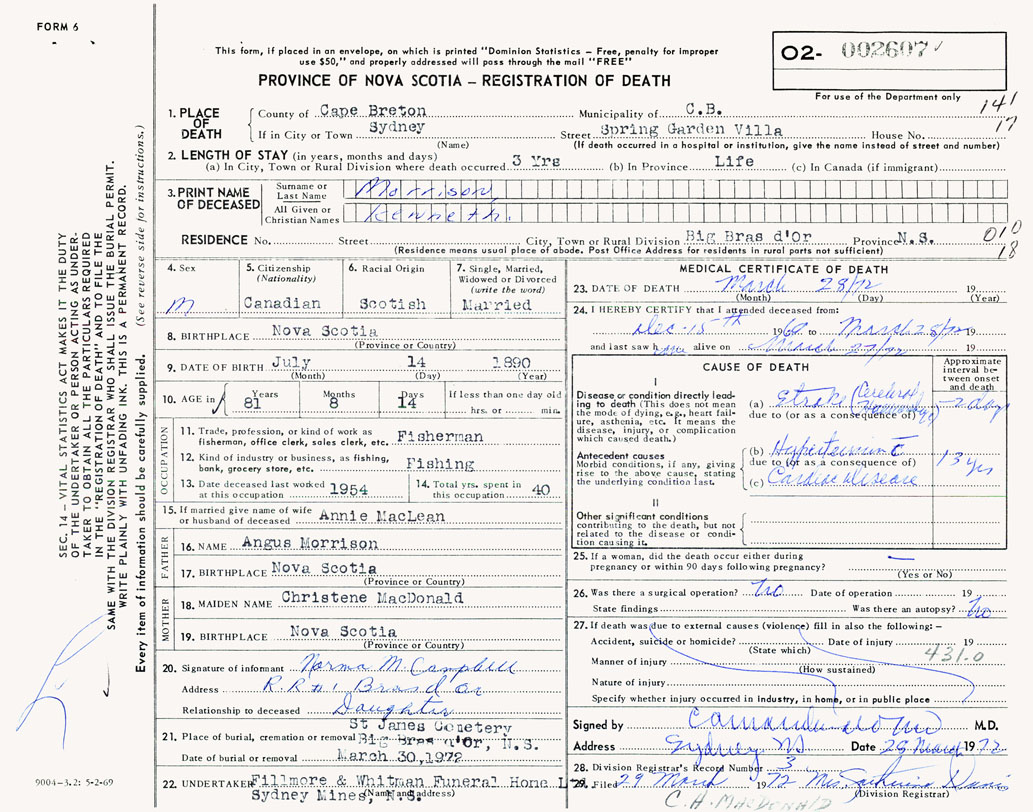 FORM 6
This form, if placed in an envelope, on which is printed "Dominion Statistics – Free, penalty for improper
use $50," and properly addressed will pass through the mail "FREE"
PROVINCE OF NOVA SCOTIA – REGISTRATION OF DEATH
O2- 002607
For use of the Department only
141
17
1. PLACE OF DEATH
County of Cape Breton Municipality of C.B.
If in City or Town Sydney Street Spring Garden Villa House No.
(Name) (If death occurred in a hospital or institution, give the name instead of street and number)
2. LENGTH OF STAY (in years, months and days)
(a) In City, Town or Rural Division where death occurred 3 Yrs (b) In Province Life (c) In Canada (if immigrant)
3. PRINT NAME OF DECEASED
Surname or Last Name Morrison
All Given or Christian Names Kenneth.
RESIDENCE No. Street City, Town or Rural Division Big Bras d'Or Province N.S.
(Residence means usual place of abode. Post Office Address for residents in rural parts not sufficient)
010
18
4. Sex M
5. Citizenship (Nationality) Canadian
6. Racial Origin Scotish
7. Single, Married, Widowed or Divorced (write the word) Married
8. BIRTHPLACE Nova Scotia
(Province or Country)
9. DATE OF BIRTH July 14 1890
(Month) (Day) (Year)
10. AGE in Years 81 Months 8 Days 14 If less than one day old hrs. or min.
OCCUPATION
11. Trade, profession, or kind of work as fisherman, office clerk, sales clerk, etc. Fisherman
12. Kind of industry or business, as fishing, bank, grocery store, etc. Fishing
13. Date deceased last worked at this occupation 1954
14. Total yrs. spent in this occupation 40
15. If married give name of wife or husband of deceased Annie MacLean
FATHER
16. NAME Angus Morrison
17. BIRTHPLACE Nova Scotia
(Province or Country)
MOTHER
18. MAIDEN NAME Christene MacDonald
19. BIRTHPLACE Nova Scotia
(Province or Country)
20. Signature of informant Norma M. Campbell
Address R.R #1 Bras d Or
Relationship to deceased Daughter
21. Place of burial, cremation or removal St Janes Cemetery
Big Bras d'Or, N.S.
Date of burial or removal March 30,1972
22. UNDERTAKER Fillmore & Whitman Funeral Home Ltd.
(Name and address)
Sydney Mines, N.S.
MEDICAL CERTIFICATE OF DEATH
23. DATE OF DEATH March 28/72 19
(Month) (Day) (Year)
24. I HEREBY CERTIFY that I attended deceased from:
Dec. 15th 1960 to March 28/72 19
and last saw h alive on March 27/72 19
CAUSE OF DEATH
Approximate interval between onset and death
I
Disease or condition directly leading to death (This does not mean the mode of dying, e.g., heart failure, asthenia, etc. It means the disease, injury, or complication which caused death.)
(a) Stroke (Cerebral
due to (or as a consequence of)
2 days
Antecedent causes
Morbid conditions, if any, giving rise to the above cause, stating the underlying condition last.
(b)
due to (or as a consequence of)
(c) Cardiac disease
13 yrs
II
Other significant conditions contributing to the death, but not related to the disease or condition causing it.
25. If a woman, did the death occur either during
pregnancy or within 90 days following pregnancy?
(Yes or No)
26. Was there a surgical operation? No Date of operation 19
State findings Was there an autopsy? No
27. If death was due to external causes (violence) fill in also the following: –
Accident, suicide or homicide? Date of injury 19
(State which)
431.0
Manner of injury
(How sustained)
Nature of injury
Specify whether injury occurred in industry, in home, or in public place
Signed by M.D.
Address Sydney NS Date 29 March 1972
28. Division Registrar's Record Number 3
29. Filed 29 March 1972
(Division Registrar)
C. H. MACDONALD
SEC. 14 – VITAL STATISTICS ACT MAKES IT THE DUTY
OF THE UNDERTAKER OR PERSON ACTING AS UNDER-
TAKER TO OBTAIN ALL THE PARTICULARS REQUIRED
IN THE "REGISTRATION OF DEATH" AND TO FILE THE
SAME WITH THE DIVISION REGISTRAR WHO SHALL ISSUE THE BURIAL PERMIT.
WRITE PLAINLY WITH UNFADING INK. THIS IS A PERMANENT RECORD.
Every item of information should be carefully supplied. (See reverse side for instructions.)
9004–3.2: 5-2-69